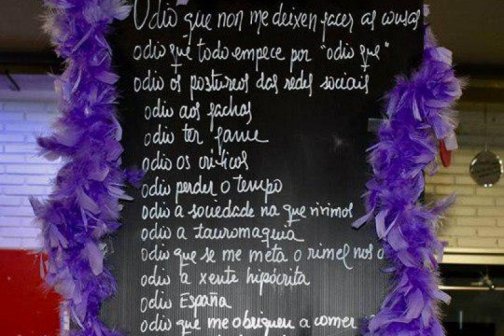 Odio que non me deixen facer as cousas
odio que todo empece por "odio que"
odio os postureos das redes sociais
odio aos fachas
odio ter fame
odio os críticos
odio perder o tempo
odio a sociedade na que vivimos
odio a tauromaquia
odio que se me meta o rimel nos o
odio a xente hipócrita
odio España
odio que me obriguen a comer